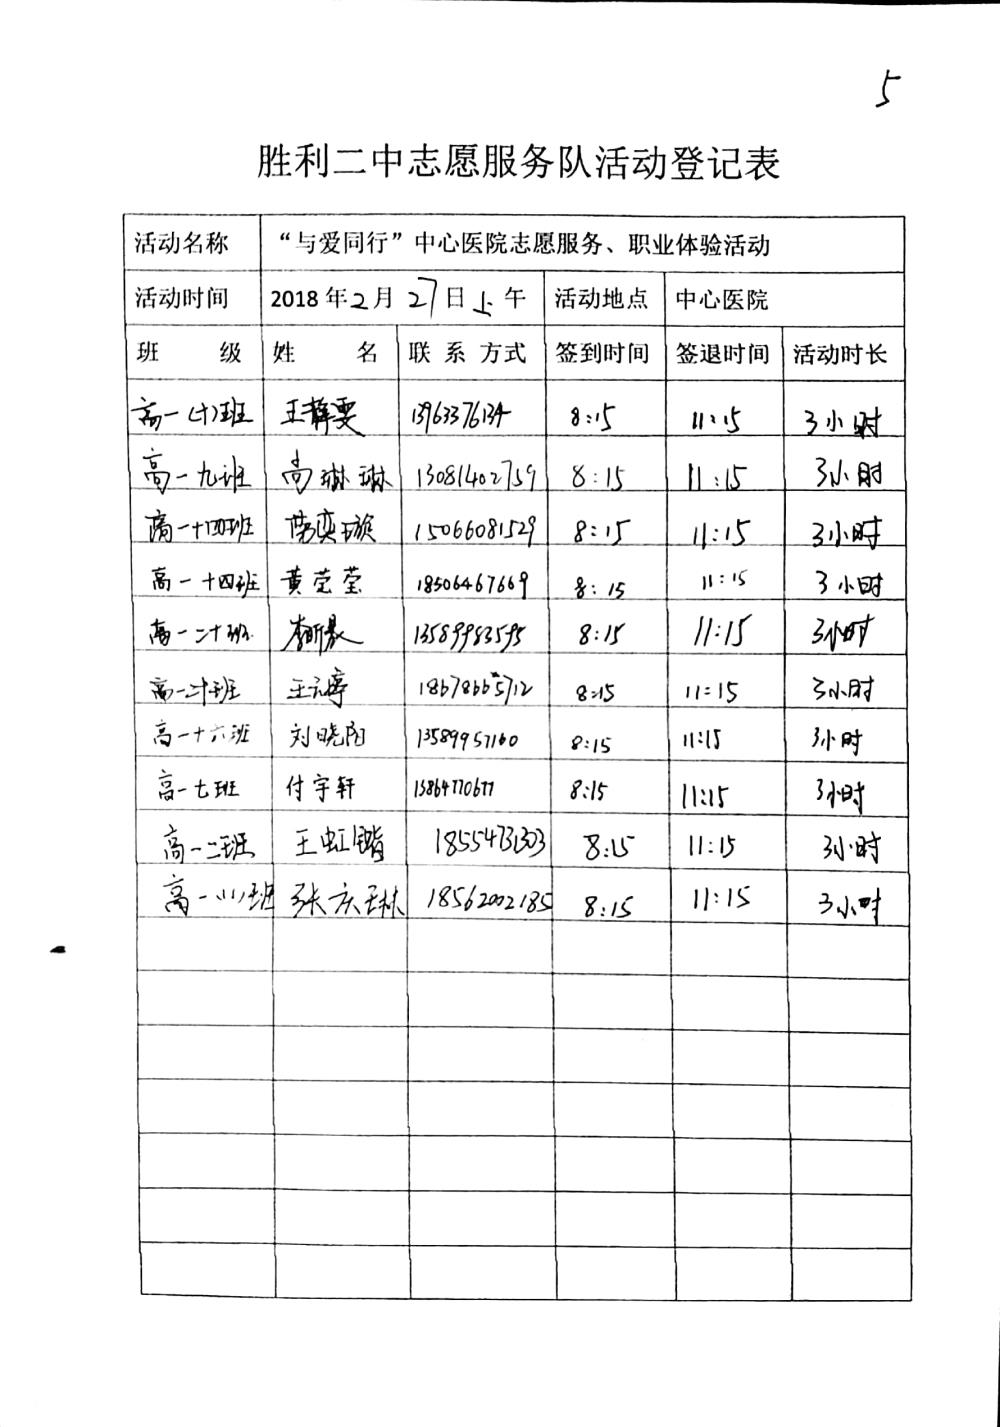 5
胜利二中志愿服务队活动登记表
活动名称 “与爱同行”中心医院志愿服务、职业体验活动
活动时间 2018年2月27日上午 活动地点 中心医院
班 级 姓 名 联系方式 签到时间 签退时间 活动时长
高一(十)班 王静雯 13963376134 8:15 11:15 3小时
高一九班 尚琳琳 13081402759 8:15 11:15 3小时
高一十四班 奕璇 15066081529 8:15 11:15 3小时
高一十四班 黄莹莹 18506467669 8:15 11:15 3小时
高一二十班 李昕晟 13589983595 8:15 11:15 3小时
高一二十班 王婷 18678665712 8:15 11:15 3小时
高一十六班 刘晓阳 13589957160 8:15 11:15 3小时
高一七班 付宇轩 13864770677 8:15 11:15 3小时
高一二班 王虹锴 18554731303 8:15 11:15 3小时
高一班 张庆 18562002185 8:15 11:15 3小时